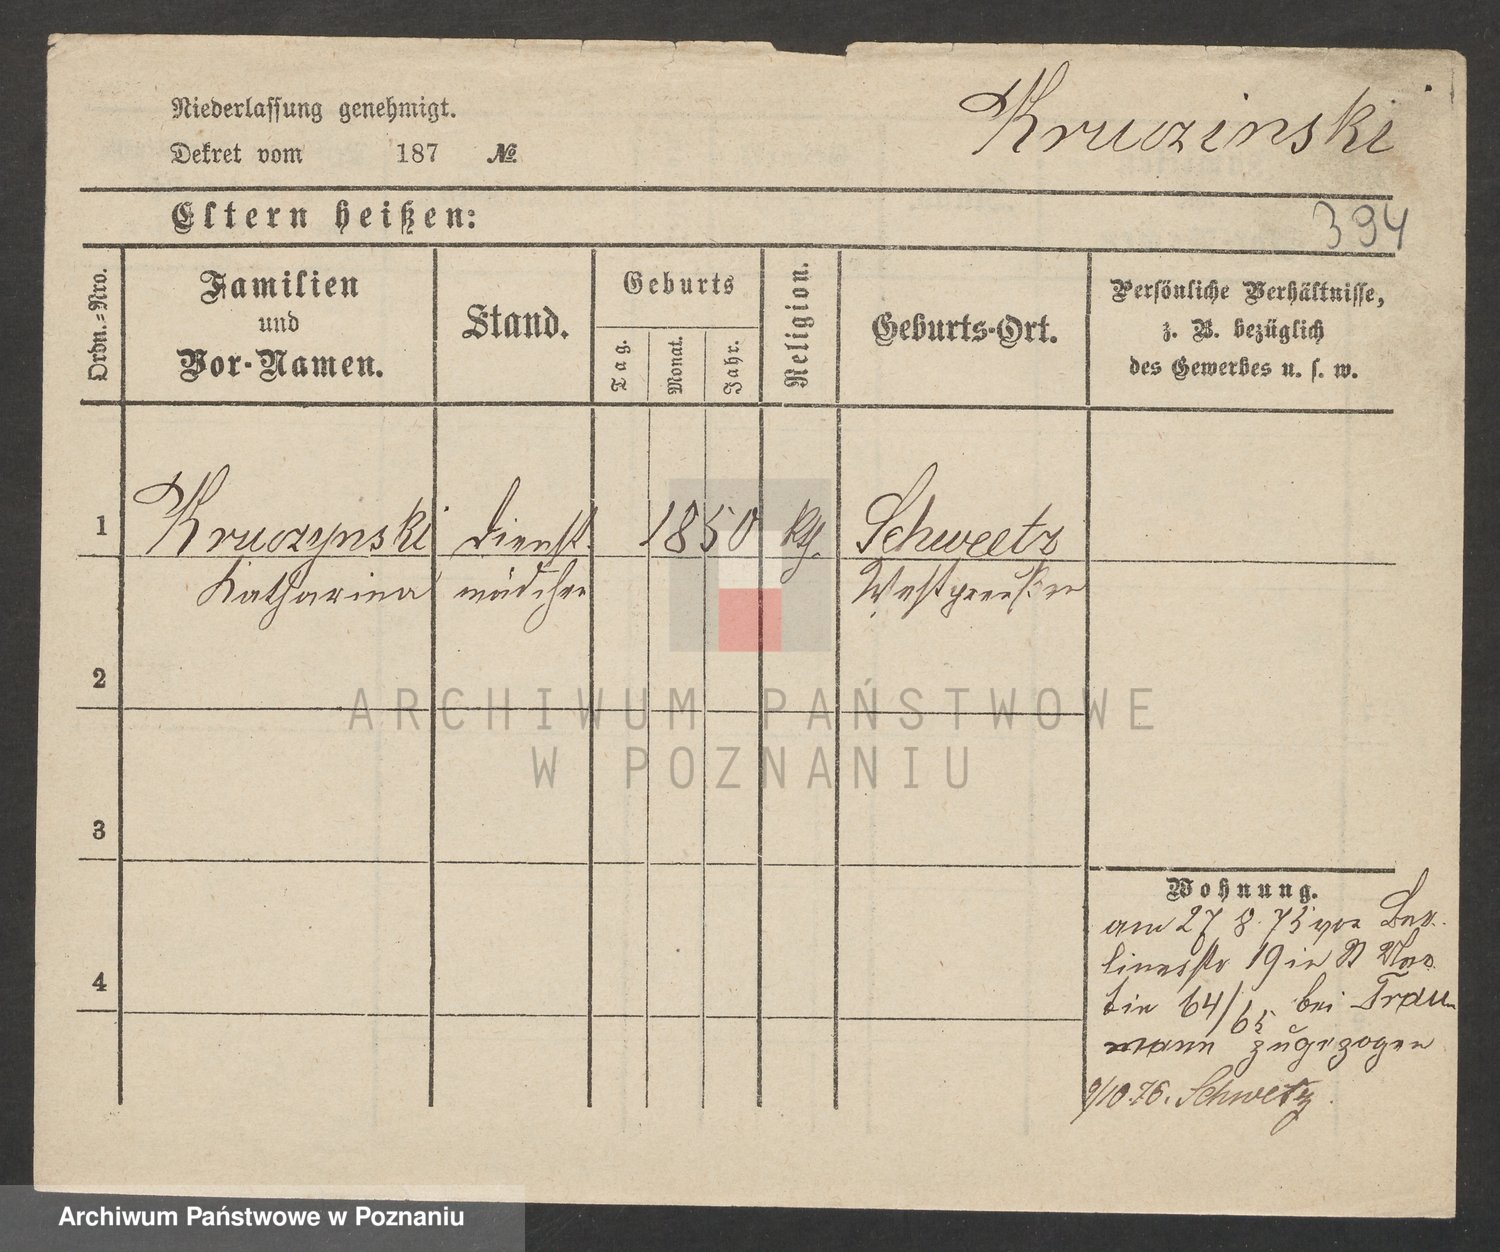 Niederlassung genehmigt.
Dekret vom 187 №
Kruczinski
Eltern heißen:
394
Ordn.-Nro.
Familien
und
Vor-Namen.
Stand.
Geburts
Tag.
Monat.
Jahr.
Religion.
Geburts-Ort.
Persönliche Verhältnisse,
z. B. bezüglich
des Gewerbes u. s. w.
1 Kruczynski Dienst 1850 kth. Schweetz
Katharina mädchen Westpreußen
2
3
4
Wohnung.
am 27 8 75 von Ber
linerstr 19 in St Mar
tin 64/65 bei Trau
mann zugezogen
9/10.76. Schwetz.
ARCHIWUM PAŃSTWOWE
W POZNANIU
Archiwum Państwowe w Poznaniu